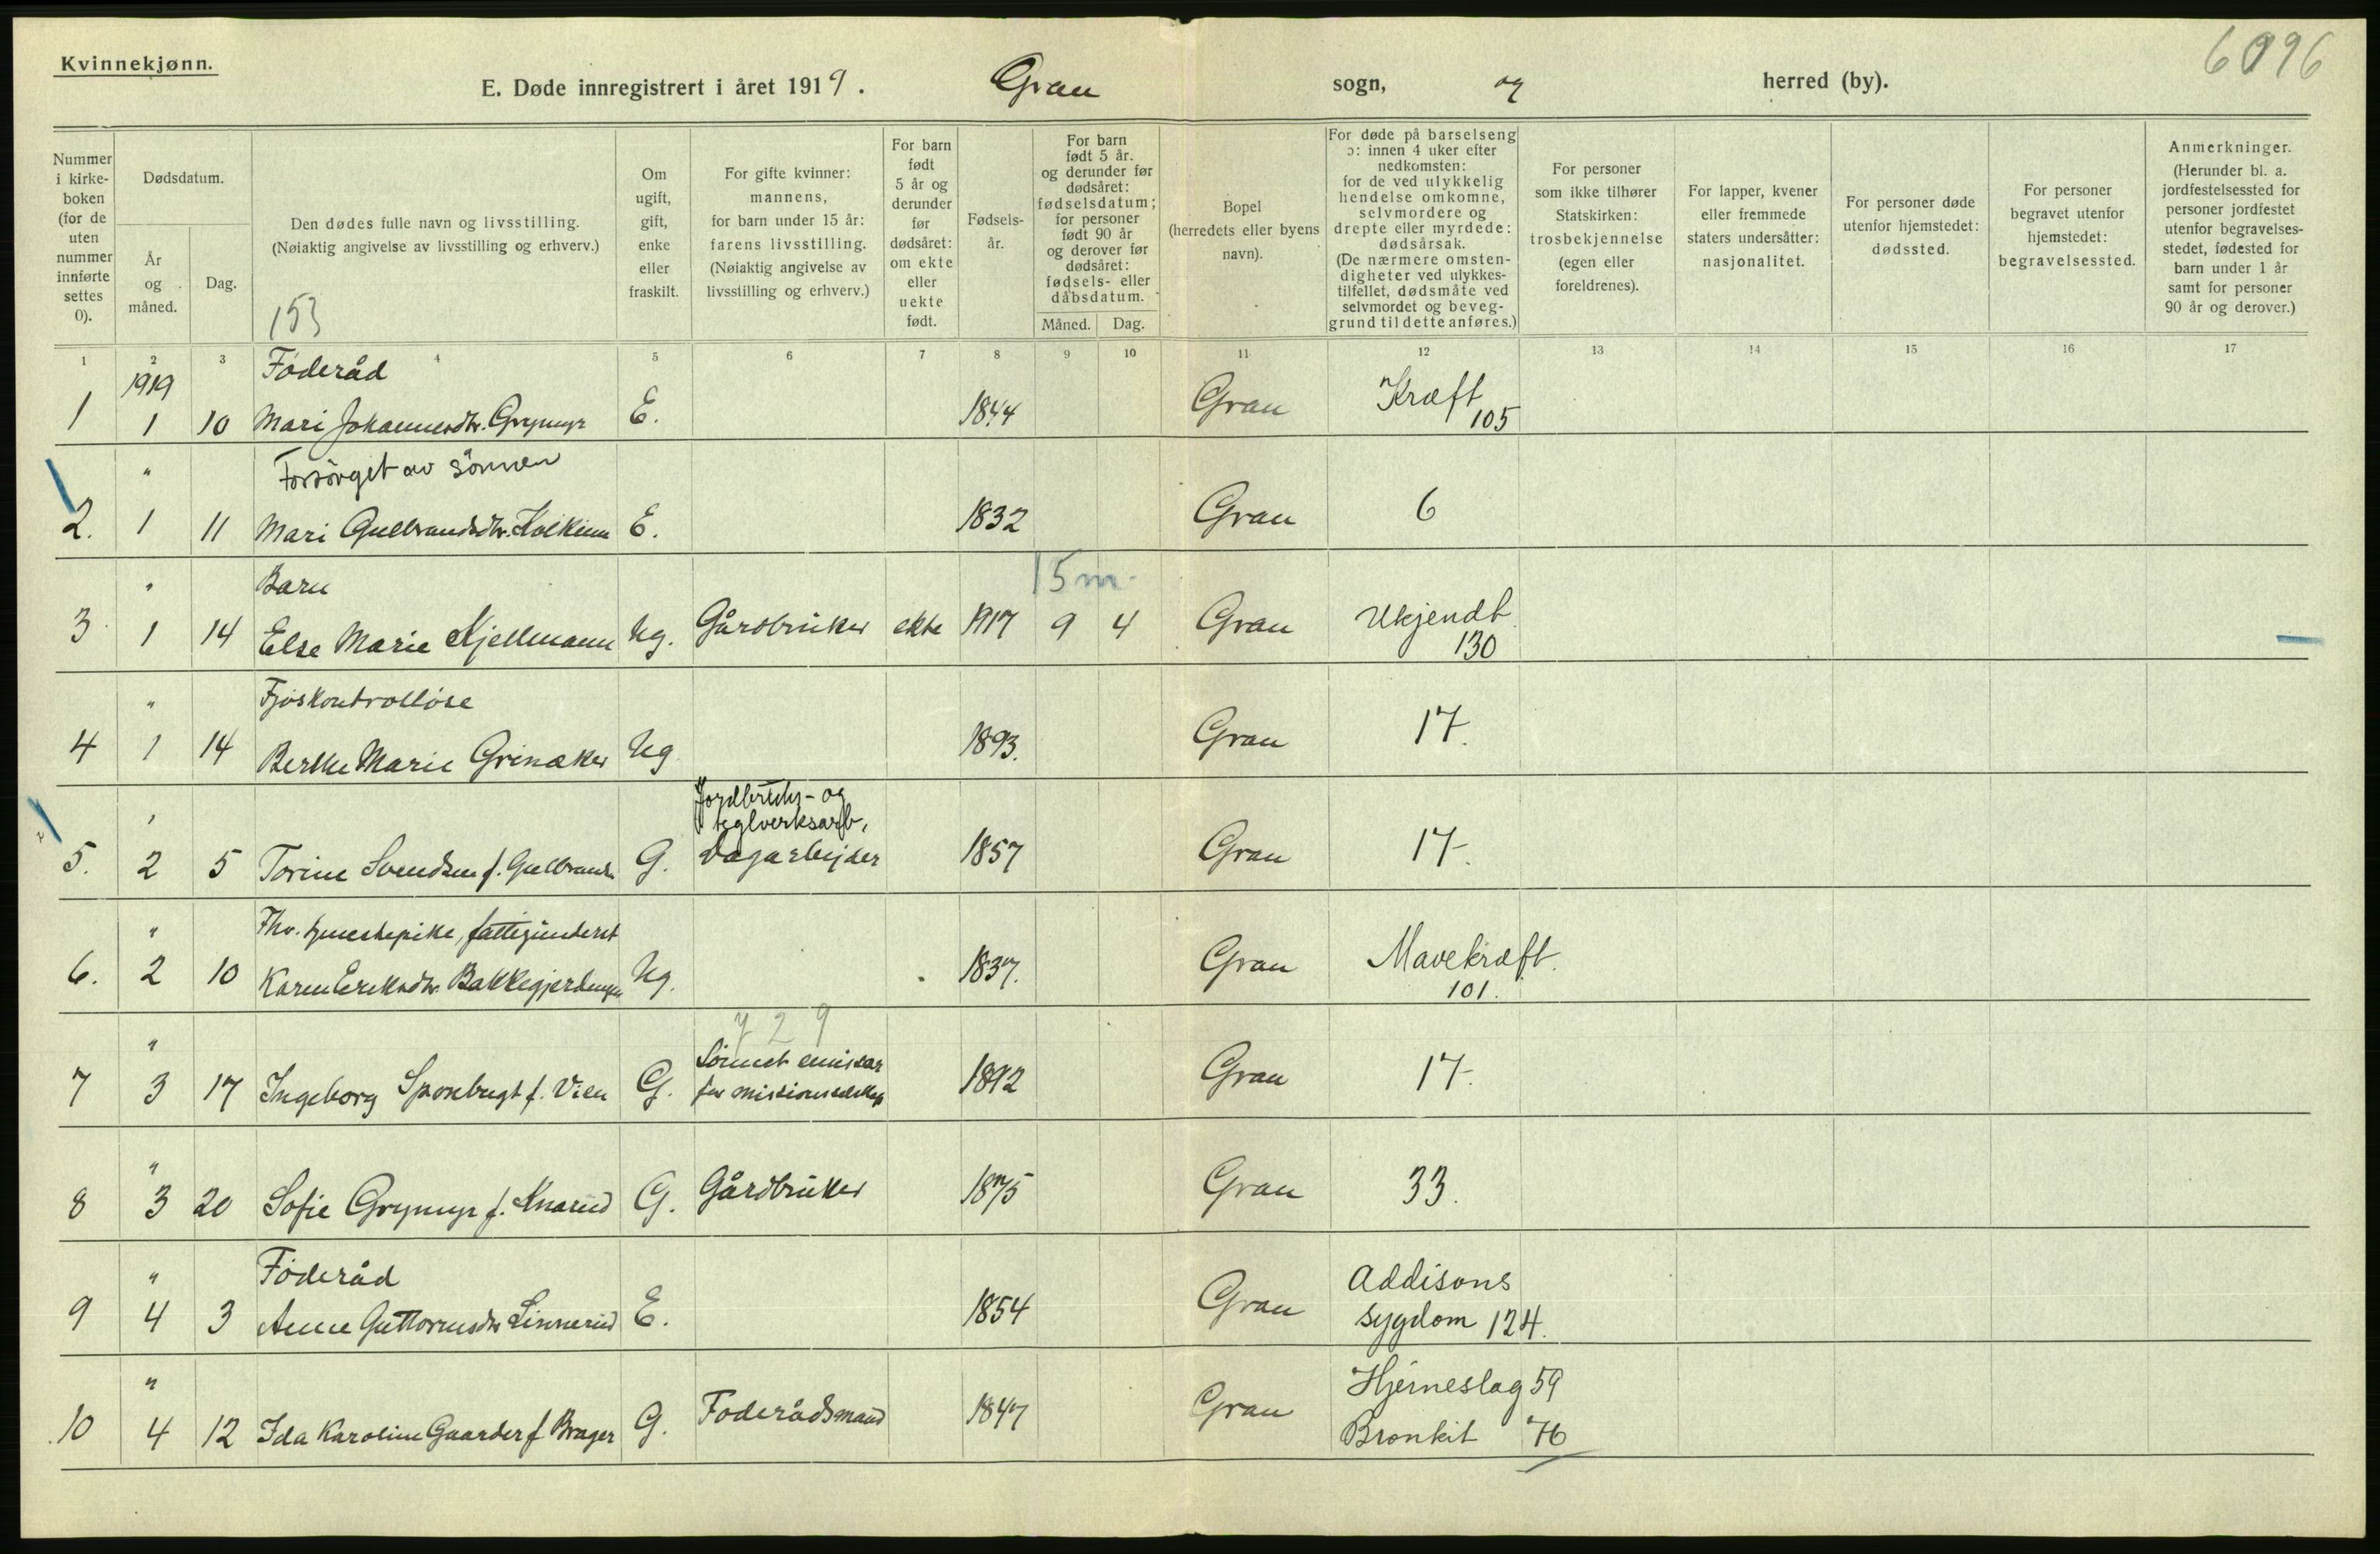 Kvinnekjønn.
6096
E. Døde innregistrert i året 1919. Gran sogn, og herred (by).
Nummer i kirke-boken (for de uten nummer innførte settes 0).
Dødsdatum.
År og måned.
Dag.
Den dødes fulle navn og livsstilling.
(Nøiaktig angivelse av livsstilling og erhverv.)
153
Om ugift, gift, enke eller fraskilt.
For gifte kvinner: mannens, for barn under 15 år: farens livsstilling. (Nøiaktig angivelse av livsstilling og erhverv.)
For barn født 5 år og derunder før dødsåret: om ekte eller uekte født.
Fødsels-år.
For barn født 5 år. og derunder før dødsåret: fødselsdatum; for personer født 90 år og derover før dødsåret: fødsels- eller dåbsdatum.
Måned. Dag.
Bopel (herredets eller byens navn).
For døde på barselseng ɔ: innen 4 uker efter nedkomsten: for de ved ulykkelig hendelse omkomne, selvmordere og drepte eller myrdede: dødsårsak. (De nærmere omsten-digheter ved ulykkes-tilfellet, dødsmåte ved selvmordet og beveg-grund til dette anføres.)
For personer som ikke tilhører Statskirken: trosbekjennelse (egen eller foreldrenes).
For lapper, kvener eller fremmede staters undersåtter: nasjonalitet.
For personer døde utenfor hjemstedet: dødssted.
For personer begravet utenfor hjemstedet: begravelsessted.
Anmerkninger. (Herunder bl. a. jordfestelsessted for personer jordfestet utenfor begravelses-stedet, fødested for barn under 1 år samt for personer 90 år og derover.)
1 2 3 4 5 6 7 8 9 10 11 12 13 14 15 16 17
1919 Føderåd
1 1 10 Mari Johannesdtr. Grymyr E. 1844 Gran Kræft 105
" Forsörget av sönnen
2. 1 11 Mari Gulbrandsdtr. E. 1832 Gran 6
" Barn 15 m.
3 1 14 Else Marie Kjellmann Ug. Gårdbruker ekte 1917 9 4 Gran Ukjendt 130
" Fjøskontrolløse
4 1 14 Berthe Marie Grinaker Ug 1893. Gran 17.
" Jordbruks- og teglverksarb.
5. 2 5 Torine Svendsen f. Gulbrands. G. Dagarbejder 1857 Gran 17.
" Fhv. tjenestepike, fattigunderst
6. 2 10 Karen Eriksdtr. Bakkegjerdingen Ug. 1837. Gran Mavekræft. 101.
" 729
7 3 17 Ingeborg f. Vien G. Lönnet emissær for missionsselskap 1892 Gran 17.
"
8 3 20 Sofie Grymyr f. Knarud G. Gårdbruker 1875 Gran 33.
" Føderåd
9 4 3 Anne Guttormsdtr Linnerud E. 1854 Gran Addisons sygdom 124.
"
10 4 12 Ida Karoline Gaarder f Brager G. Foderådsmand 1847 Gran Hjerneslag 59
Bronkit 76